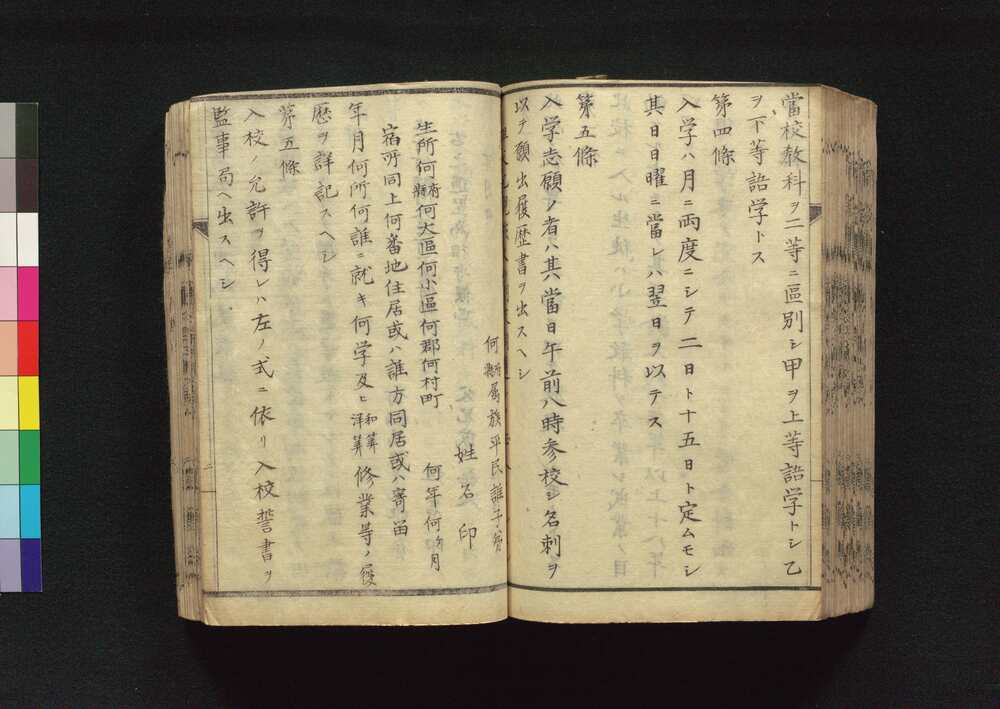 當校教科ヲ二等ニ區別シ甲ヲ上等語学トシ乙
ヲ下等語学トス
第四條
入学ハ月ニ両度ニシテ二日ト十五日ト定ムモシ
其日日曜ニ當レハ翌日ヲ以テス
第五條
入学志願ノ者ハ其當日午前八時参校シ名刺ヲ
以テ願出履歴書ヲ出スヘシ
何府縣属族平民誰子弟
姓名印
何年何月
生所何府縣何大區何小區何郡何村町
宿所同上何番地住居或ハ誰方同居或ハ寄畄
年月何所何誰ニ就キ何学及ヒ和算洋算修業等ノ履
歴ヲ詳記スヘシ
第五條
入校ノ允許ヲ得レハ左ノ式ニ依リ入校誓書ヲ
監事局ヘ出スヘシ